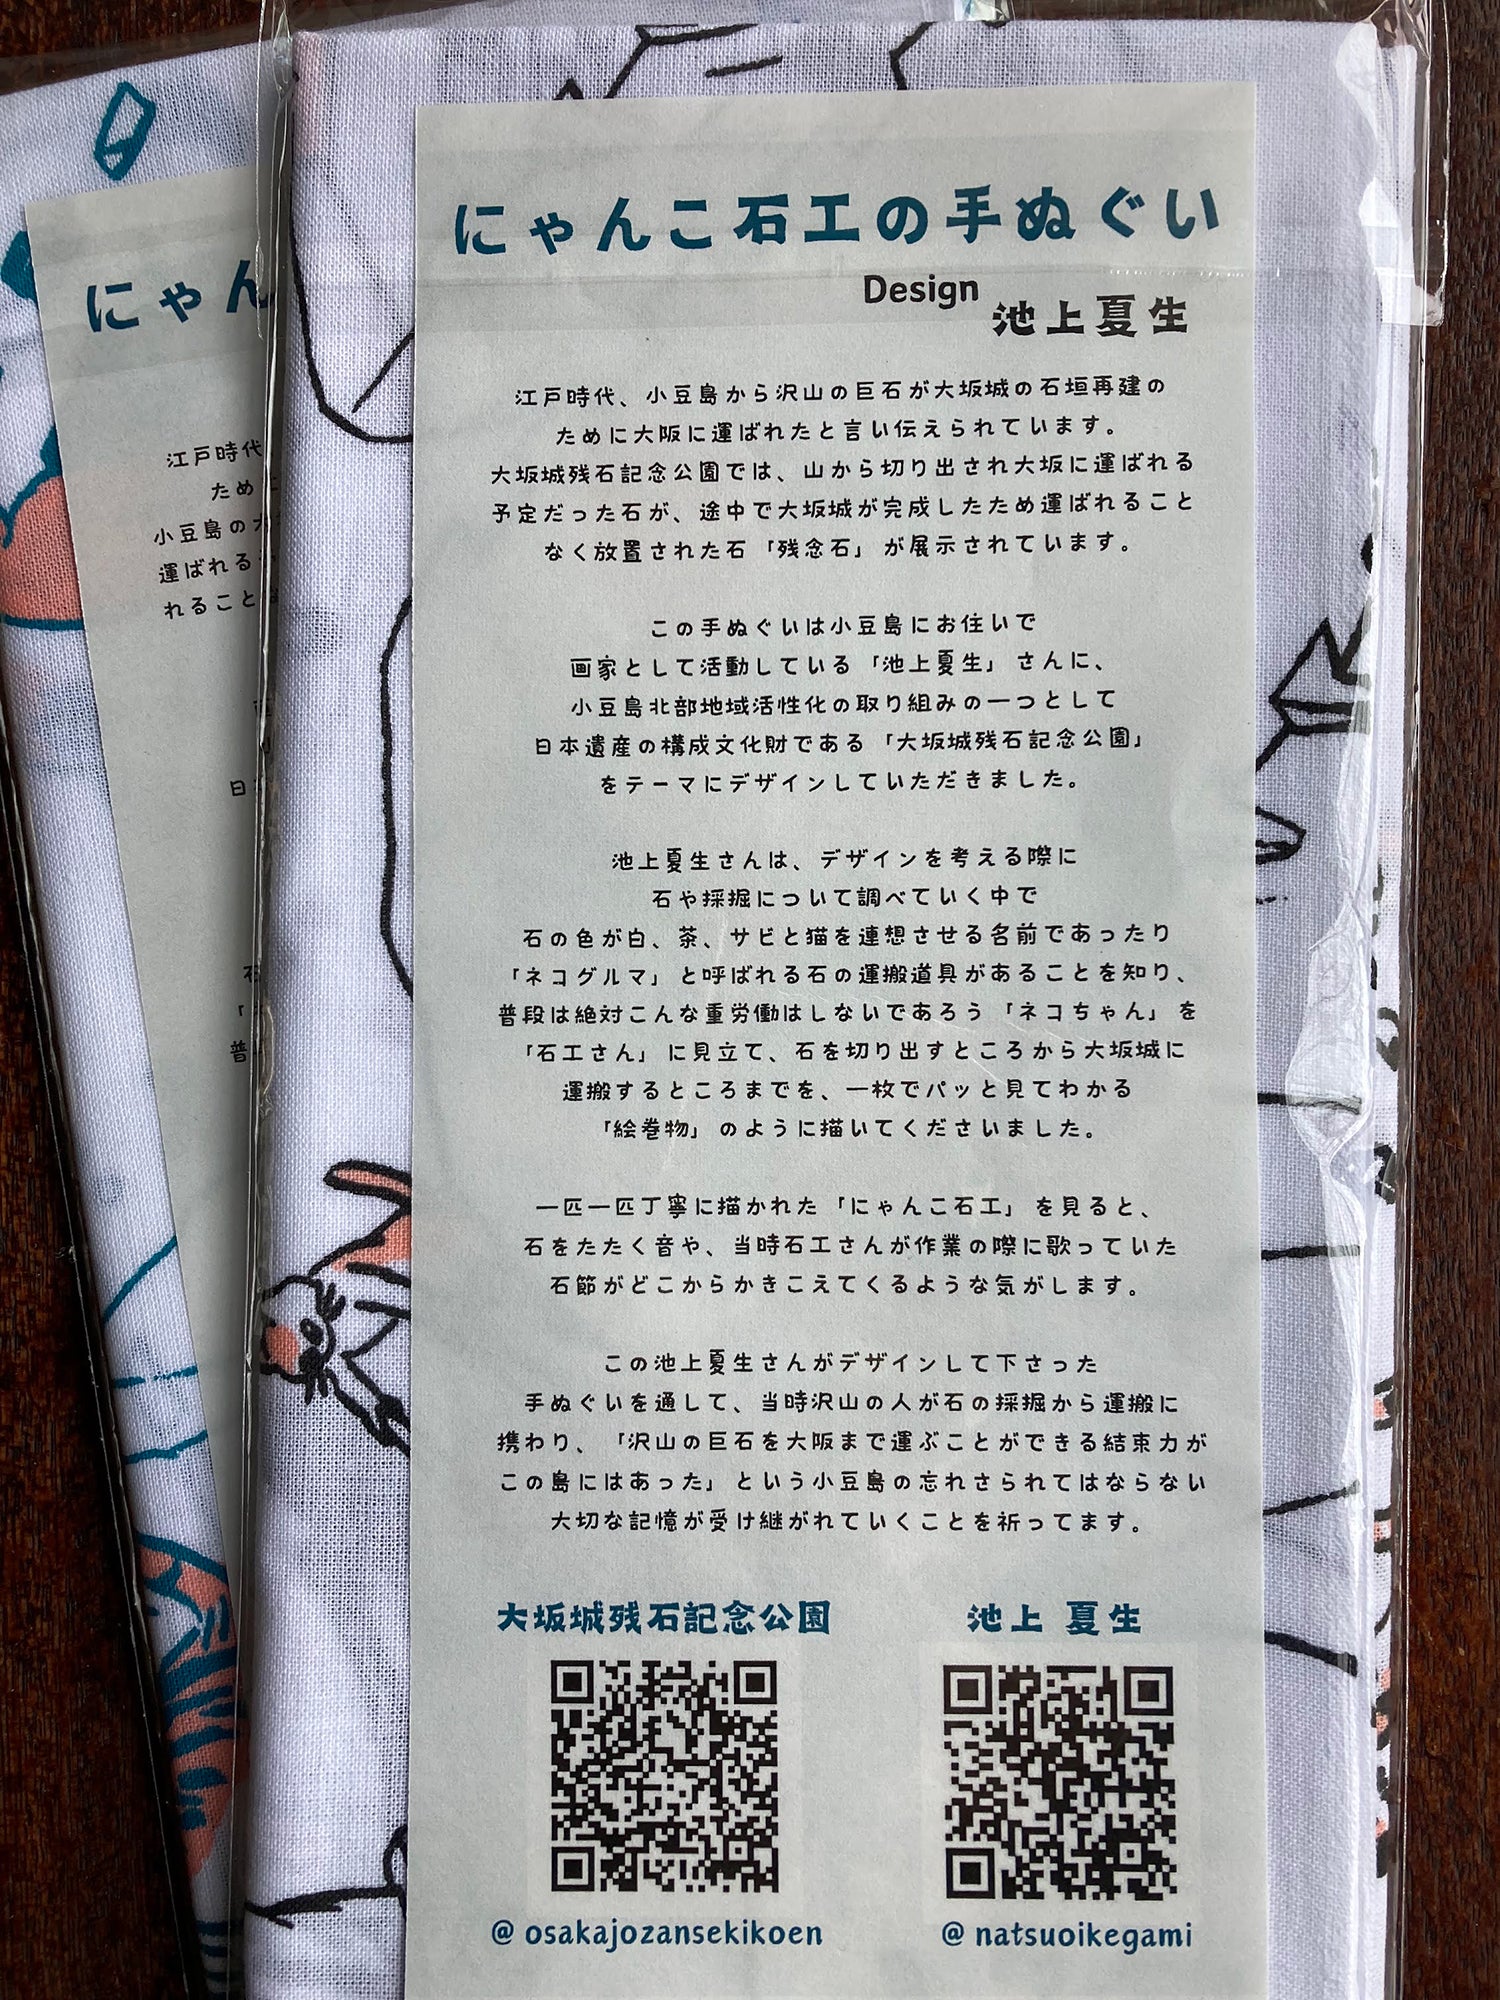 にゃんこ石工の手ぬぐい
Design 池上夏生
江戸時代、小豆島から沢山の巨石が大坂城の石垣再建の
ために大阪に運ばれたと言い伝えられています。
大坂城残石記念公園では、山から切り出され大坂に運ばれる
予定だった石が、途中で大坂城が完成したため運ばれること
なく放置された石「残念石」が展示されています。
この手ぬぐいは小豆島にお住いで
画家として活動している「池上夏生」さんに、
小豆島北部地域活性化の取り組みの一つとして
日本遺産の構成文化財である「大坂城残石記念公園」
をテーマにデザインしていただきました。
池上夏生さんは、デザインを考える際に
石や採掘について調べていく中で
石の色が白、茶、サビと猫を連想させる名前であったり
「ネコグルマ」と呼ばれる石の運搬道具があることを知り、
普段は絶対こんな重労働はしないであろう「ネコちゃん」を
「石工さん」に見立て、石を切り出すところから大坂城に
運搬するところまでを、一枚でパッと見てわかる
「絵巻物」のように描いてくださいました。
一匹一匹丁寧に描かれた「にゃんこ石工」を見ると、
石をたたく音や、当時石工さんが作業の際に歌っていた
石節がどこからかきこえてくるような気がします。
この池上夏生さんがデザインして下さった
手ぬぐいを通して、当時沢山の人が石の採掘から運搬に
携わり、「沢山の巨石を大阪まで運ぶことができる結束力が
この島にはあった」という小豆島の忘れさられてはならない
大切な記憶が受け継がれていくことを祈ってます。
大坂城残石記念公園
池上 夏生
@ osakajozansekikoen
@ natsuoikegami
にゃん
江戸時代
ために
小豆島の
運ばれる
れること
日
石
「
普